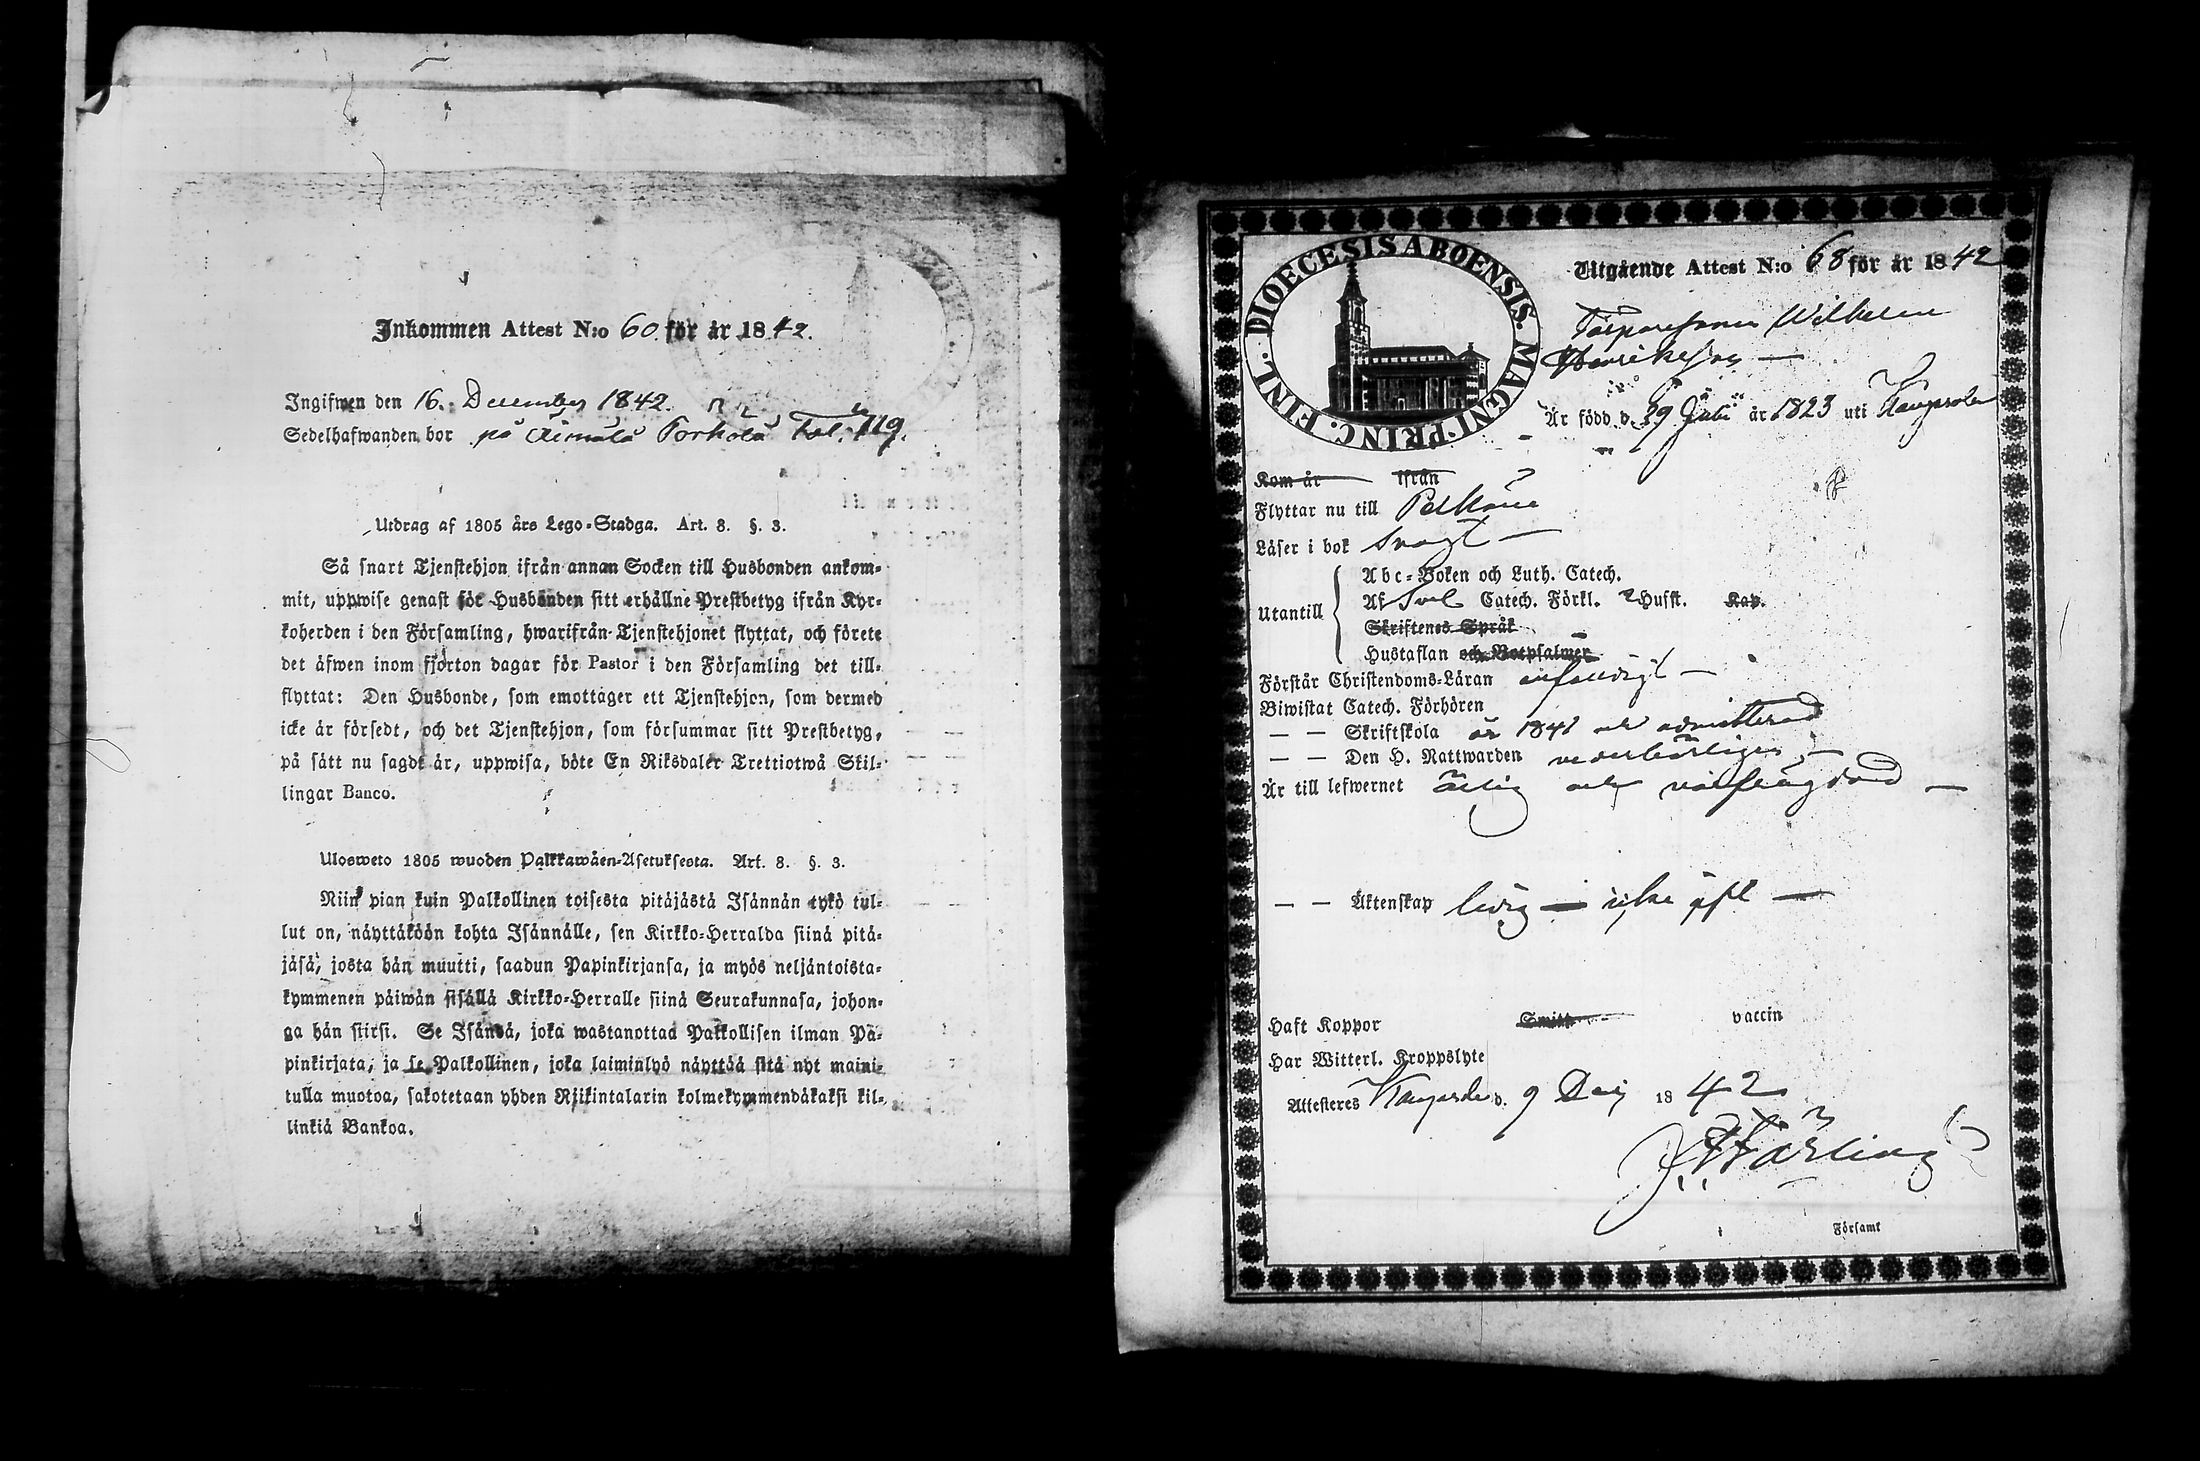 Inkommen Attest N:o 60 för år 1842.
Ingifwen den 16. December 1842.
Sedelhafwanden bor på Porkola Fol. 119.
Utdrag af 1805 års Lego-Stadga. Art. 8. §. 3.
Så snart Tjenstehjon ifrån annan Socken till Husbonden ankom-
mit, uppwise genast för Husbonden sitt erhållne Prestbetyg ifrån Kyr-
koherden i den Församling, hwarifrån Tjenstehjonet flyttat, och förete
det äfwen inom fjorton dagar för Pastor i den Församling det till-
flyttat: Den Husbonde, som emottager ett Tjenstehjon, som dermed
icke är försedt, och det Tjenstehjon, som försummar sitt Prestbetyg,
på sätt nu sagdt är, uppwisa, böte En Riksdaler Trettiotwå Skil-
lingar Banco.
Ulosweto 1805 wuoden Palkkawäen-Asetuksesta. Art. 8. §. 3.
Niin pian kuin Palkollinen toisesta pitäjästä Isännän tykö tul-
lut on, näyttäköön kohta Isännälle, sen Kirkko-Herralda siinä pitä-
jäsä, josta hän muutti, saadun Papinkirjansa, ja myös neljäntoista-
kymmenen päiwän sisällä Kirkko-Herralle siinä Seurakunnasa, johon-
ga hän siirsi. Se Isändä, joka wastanottaa Palkollisen ilman Pa-
pinkirjata, ja se Palkollinen, joka laiminlyö näyttää sitä nyt maini-
tulla muotoa, sakotetaan yhden Riikintalarin kolmekymmendäkaksi kil-
linkiä Bankoa.
DIOECESIS ABOENSIS. MAGNI. PRINC. FINL.
Utgående Attest N:o 68 för år 1842
Torparesonen Wilhelm
Henriksson
Är född d. 29 Juli år 1823 uti Kangasala
Kom år ifrån
Flyttar nu till Pelkäne
Läser i bok svagt
Utantill
Abc-Boken och Luth. Catech.
Af Svel Catech. Förkl. Husft. Kap.
Skriftenes Språk
Hustaflan och Botpsalmer
Förstår Christendoms-Läran enfaldigt
Biwistat Catech. Förhören
— — Skriftskola år 1841 och admitterad
— — Den H. Nattwarden vederbörligen
Är till lefwernet ärlig och oäfen
— — Äktenskap ledig — icke
Haft Koppor Smitt vaccin
Har Witterl. Kroppslyte
Attesteres Kangasala d. 9 Dec 1842
Församl